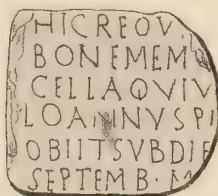 HICREQV
BONEMEM
CELLAQVIV
LOANNVSPI
OBIITSVBDIE
SEPTEMB·M